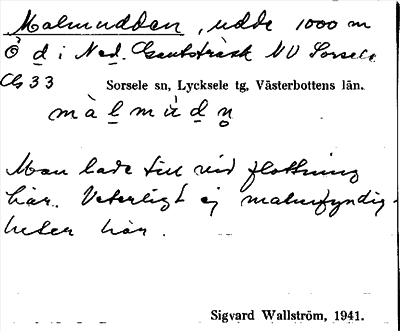 Malmudden, udde 1000 m
Ö d i Ned. Gautsträsk NV Sorsele
Cg 33 Sorsele sn, Lycksele tg, Västerbottens län.
màlmùdn̥
Man lade till vid flottning
här. Veterligt ej malmfyndig-
heter här.
Sigvard Wallström, 1941.